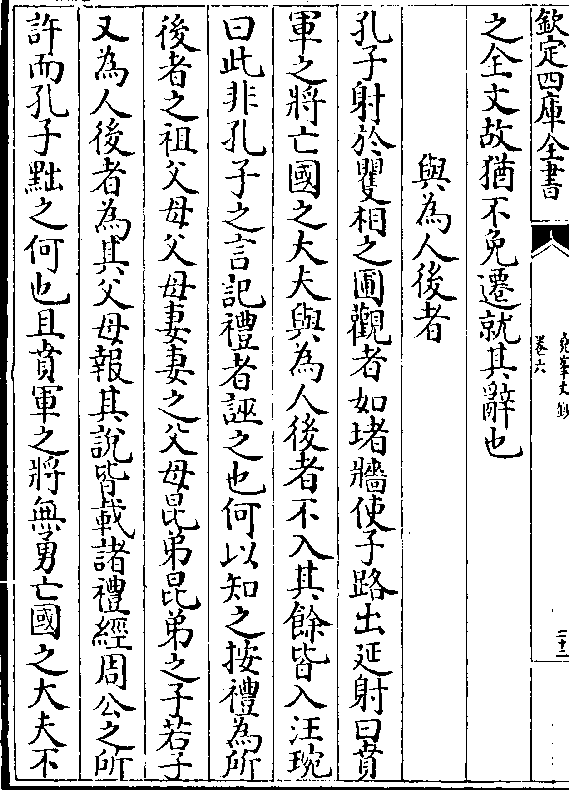 欽定四庫全書
堯峯文鈔
卷六
二十二
之全文故猶不免遷就其辭也
與為人後者
孔子射於矍相之圃觀者如堵牆使子路出延射曰賁
軍之將亡國之大夫與為人後者不入其餘皆入汪琬
曰此非孔子之言記禮者誣之也何以知之按禮為所
後者之祖父母父母妻妻之父母昆弟昆弟之子若子
又為人後者為其父母報其說皆載諸禮經周公之所
許而孔子黜之何也且賁軍之將無勇亡國之大夫不